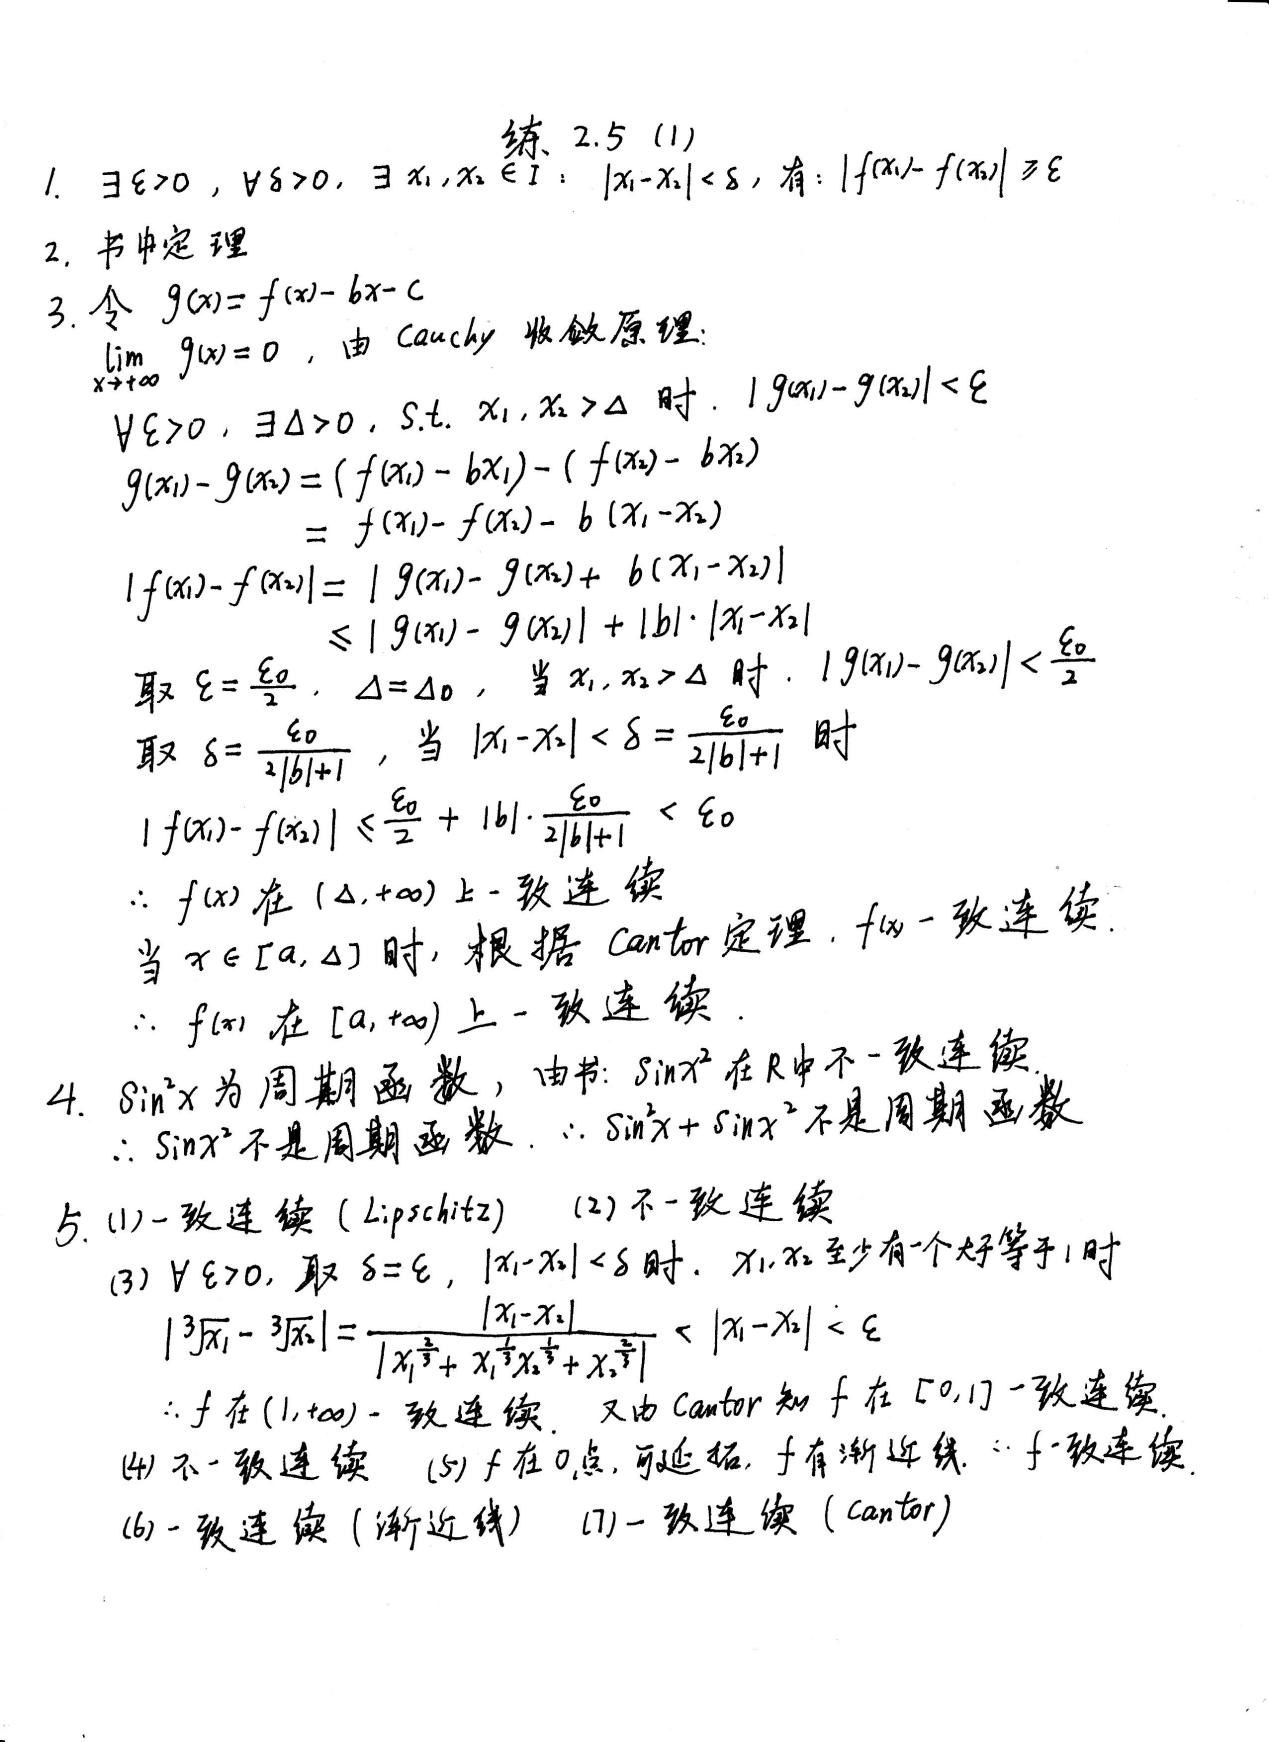 练 2.5 (1)
1. ∃ε>0, ∀δ>0, ∃x₁,x₂∈I: |x₁-x₂|<δ, 有: |f(x₁)-f(x₂)|≥ε
2. 书中定理
3. 令 g(x)=f(x)-bx-c
lim_{x→+∞} g(x)=0, 由 Cauchy 收敛原理:
∀ε>0, ∃Δ>0, s.t. x₁,x₂>Δ 时. |g(x₁)-g(x₂)|<ε
g(x₁)-g(x₂)=(f(x₁)-bx₁)-(f(x₂)-bx₂)
= f(x₁)-f(x₂)-b(x₁-x₂)
|f(x₁)-f(x₂)|=|g(x₁)-g(x₂)+b(x₁-x₂)|
≤|g(x₁)-g(x₂)|+|b|·|x₁-x₂|
取 ε=ε₀/2. Δ=Δ₀, 当 x₁,x₂>Δ 时. |g(x₁)-g(x₂)|<ε₀/2
取 δ=ε₀/(2|b|+1), 当 |x₁-x₂|<δ=ε₀/(2|b|+1) 时
|f(x₁)-f(x₂)|≤ε₀/2+|b|·ε₀/(2|b|+1)<ε₀
∴ f(x) 在 (Δ,+∞) 上一致连续
当 x∈[a,Δ] 时, 根据 Cantor 定理. f(x) 一致连续.
∴ f(x) 在 [a,+∞) 上一致连续.
4. sin²x 为周期函数, 由书: sinx² 在R中不一致连续.
∴ sinx² 不是周期函数. ∴ sin²x+sinx² 不是周期函数
5. (1) 一致连续 (Lipschitz) (2) 不一致连续
(3) ∀ε>0, 取 δ=ε, |x₁-x₂|<δ 时. x₁,x₂ 至少有一个大于等于1时
|³√x₁-³√x₂|=|x₁-x₂|/|x₁^{2/3}+x₁^{1/3}x₂^{1/3}+x₂^{2/3}|<|x₁-x₂|<ε
∴ f 在 (1,+∞) 一致连续. 又由 Cantor 知 f 在 [0,1] 一致连续.
(4) 不一致连续 (5) f 在 0点, 可延拓, f 有渐近线. ∴ f 一致连续.
(6) 一致连续 (渐近线) (7) 一致连续 (Cantor)